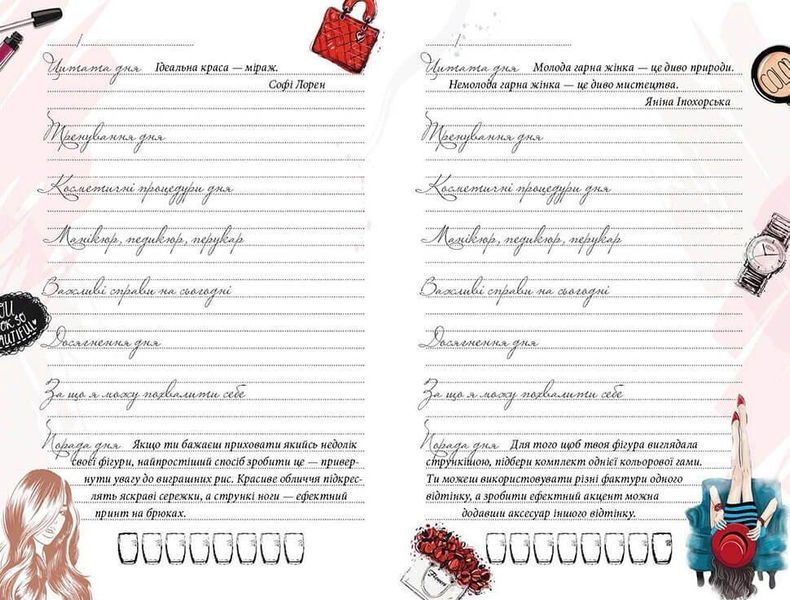 Цитата дня Ідеальна краса — міраж.
Софі Лорен
Тренування дня
Косметичні процедури дня
Манікюр, педикюр, перукар
Важливі справи на сьогодні
Досягнення дня
За що я можу похвалити себе
Порада дня Якщо ти бажаєш приховати якийсь недолік
своєї фігури, найпростіший спосіб зробити це — привер-
нути увагу до виграшних рис. Красиве обличчя підкрес-
лять яскраві сережки, а стрункі ноги — ефектний
принт на брюках.
SO
Цитата дня Молода гарна жінка — це диво природи.
Немолода гарна жінка — це диво мистецтва.
Яніна Іпохорська
Тренування дня
Косметичні процедури дня
Манікюр, педикюр, перукар
Важливі справи на сьогодні
Досягнення дня
За що я можу похвалити себе
Порада дня Для того щоб твоя фігура виглядала
стрункішою, підбери комплект однієї кольорової гами.
Ти можеш використовувати різні фактури одного
відтінку, а зробити ефектний акцент можна
додавши аксесуар іншого відтінку.